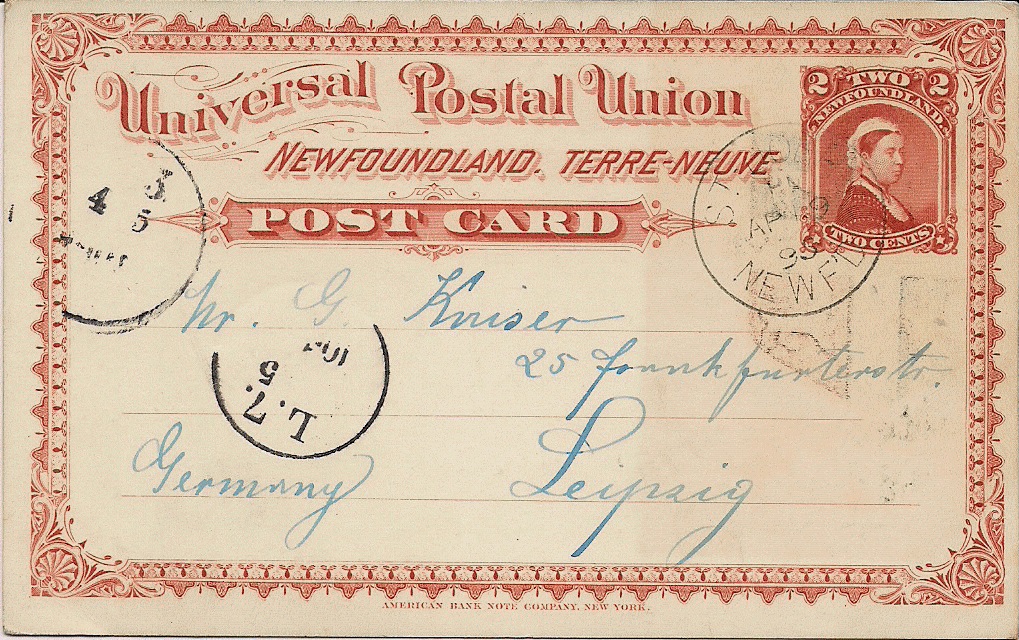 Universal Postal Union
NEWFOUNDLAND. TERRE-NEUVE
POST CARD
2 TWO 2
NEWFOUNDLAND.
TWO CENTS
ST.
AP
NEWFLD
3
4 5
L. 7.
5
Mr. G. Kaiser
25 Frankfurterstr.
Leipzig
Germany
AMERICAN BANK NOTE COMPANY, NEW YORK.